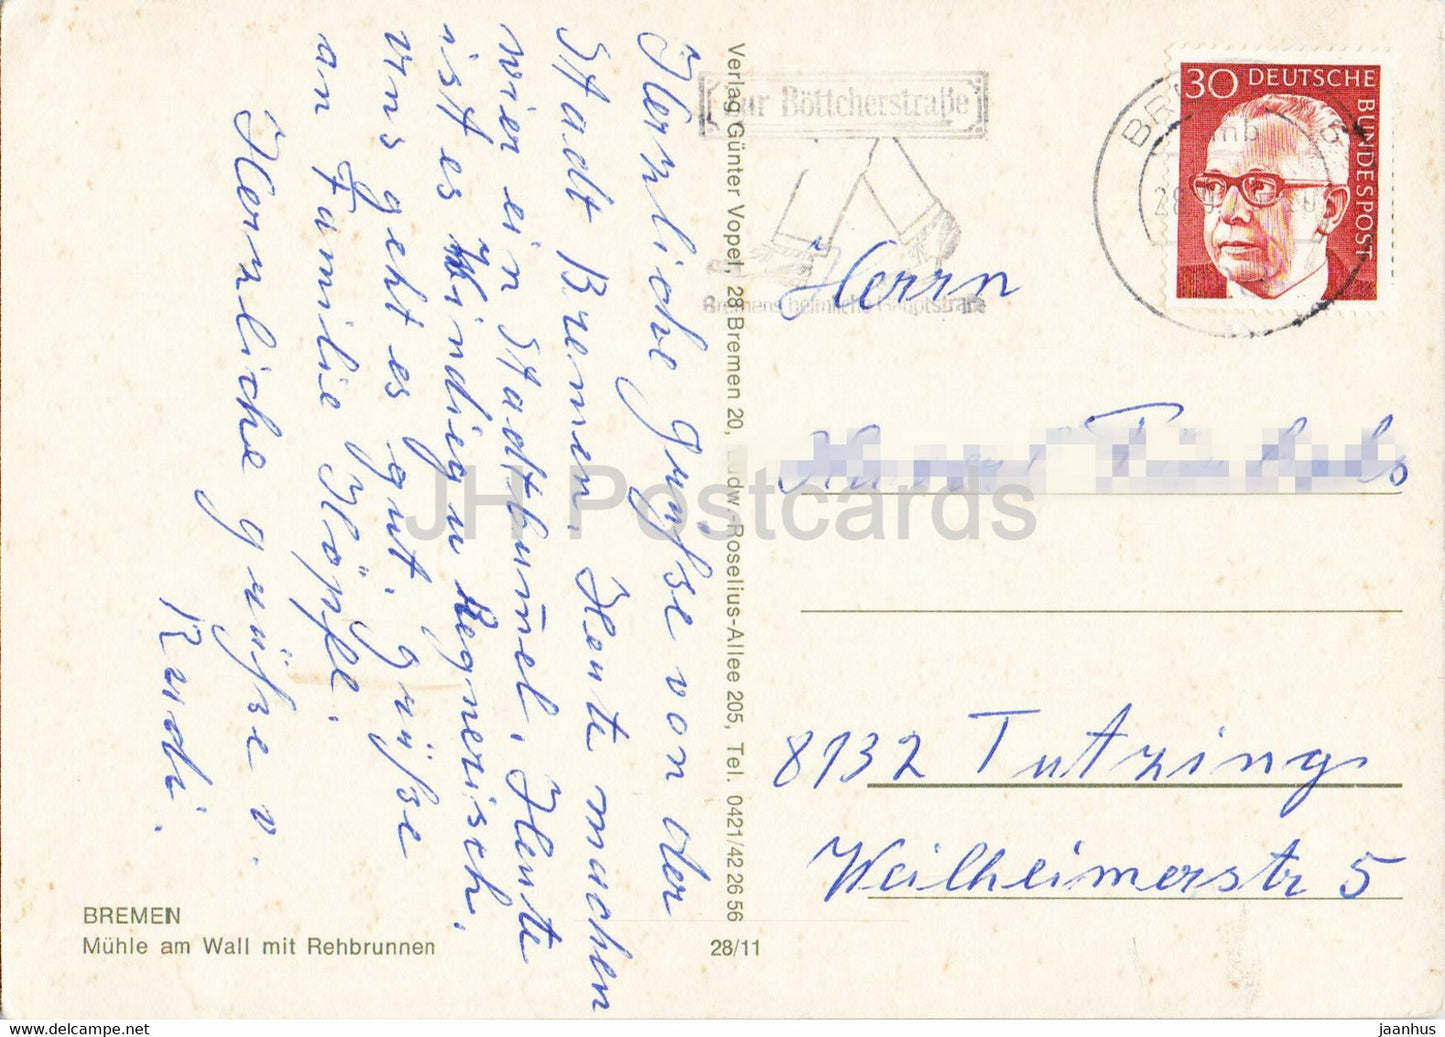 Herzliche Grüße von der
Stadt Bremen. Heute machen
wier ein Stadtbumel. Heute
ist es Windig u Regnerisch.
uns geht es gut. grüße
an Familie Höpfl.
Herzliche grüße v.
Rudi.
BREMEN
Mühle am Wall mit Rehbrunnen
28/11
Verlag Günter Vopel, 28 Bremen 20, Ludw.-Roselius-Allee 205, Tel. 0421/42 26 56
zur Böttcherstraße
Bremens heimliche Hauptstraße
30 DEUTSCHE
BUNDESPOST
Herrn
8132 Tutzing
Weilheimerstr 5
JH Postcards
www.delcampe.net
jaanhus